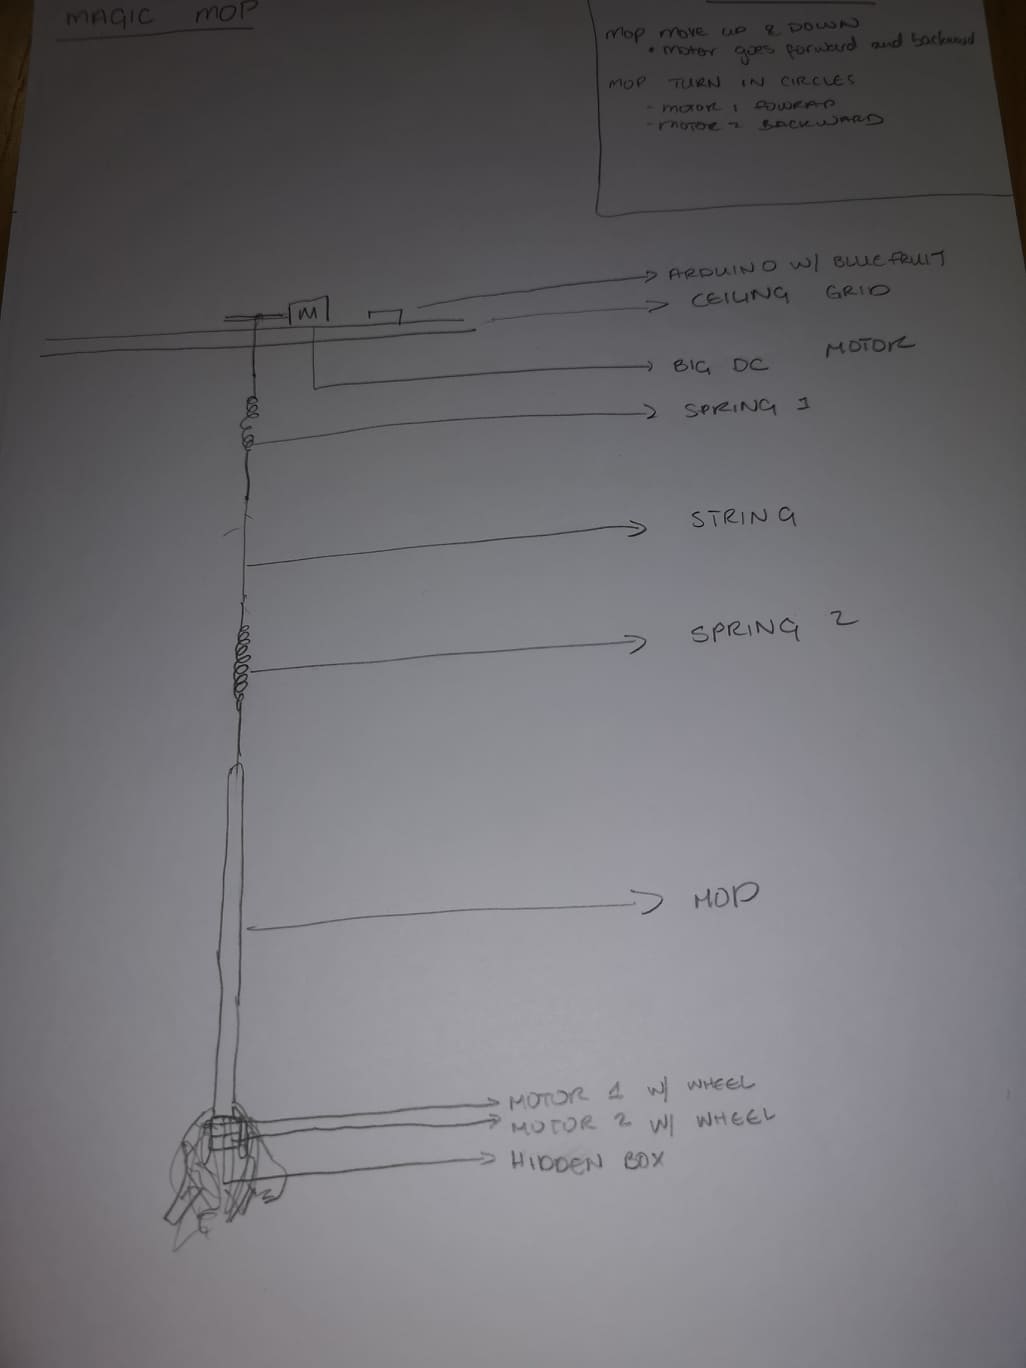 MAGIC MOP
Mop move up & DOWN
• motor goes forward and backward
MOP TURN IN CIRCLES
- MOTOR 1 FOWRAD
- MOTOR 2 BACKWARD
ARDUINO W/ BLUEFRUIT
CEILING GRID
M
BIG DC MOTOR
SPRING 1
STRING
SPRING 2
MOP
MOTOR 1 W/ WHEEL
MOTOR 2 W/ WHEEL
HIDDEN BOX